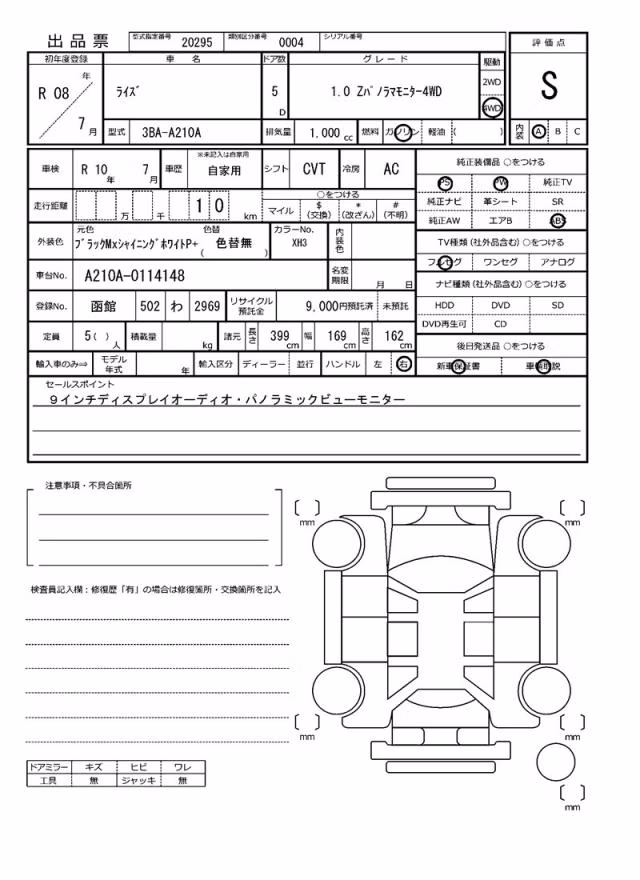 出品票 型式指定番号 20295 類別区分番号 0004 シリアル番号
評価点
S
内装 A B C
初年度登録 車名 ドア数 グレード 駆動
R 08 年 7 月
ライズ 5 D 1.0 Zパノラマモニター4WD 2WD 4WD
型式 3BA-A210A 排気量 1.000 cc 燃料 ガソリン 軽油 ( )
車検 R 10 年 7 月 車歴 ※未記入は自家用 自家用 シフト CVT 冷房 AC
走行距離 万 千 1 0 km ○をつける
マイル $(交換) *(改ざん) #(不明)
外装色 元色 ブラックMxシャイニングホワイトP+ 色替 ( 色替無 ) カラーNo. XH3 内装色
車台No. A210A-0114148 名変期限 月 日
登録No. 函館 502 わ 2969 リサイクル預託金 9,000円預託済 未預託
定員 5( )人 積載量 kg 諸元 長さ 399 cm 幅 169 cm 高さ 162 cm
輸入車のみ⇨ モデル年式 年 輸入区分 ディーラー 並行 ハンドル 左 右
純正装備品 ○をつける
PS PW 純正TV
純正ナビ 革シート SR
純正AW エアB ABS
TV種類(社外品含む) ○をつける
フルセグ ワンセグ アナログ
ナビ種類(社外品含む) ○をつける
HDD DVD SD
DVD再生可 CD
後日発送品 ○をつける
新車保証書 車輌取説
セールスポイント
9インチディスプレイオーディオ・パノラミックビューモニター
注意事項・不具合箇所
検査員記入欄：修復歴「有」の場合は修復箇所・交換箇所を記入
ドアミラー キズ ヒビ ワレ
工具 無 ジャッキ 無
[ ] mm
[ ] mm
[ ] mm
[ ] mm
[ ] mm